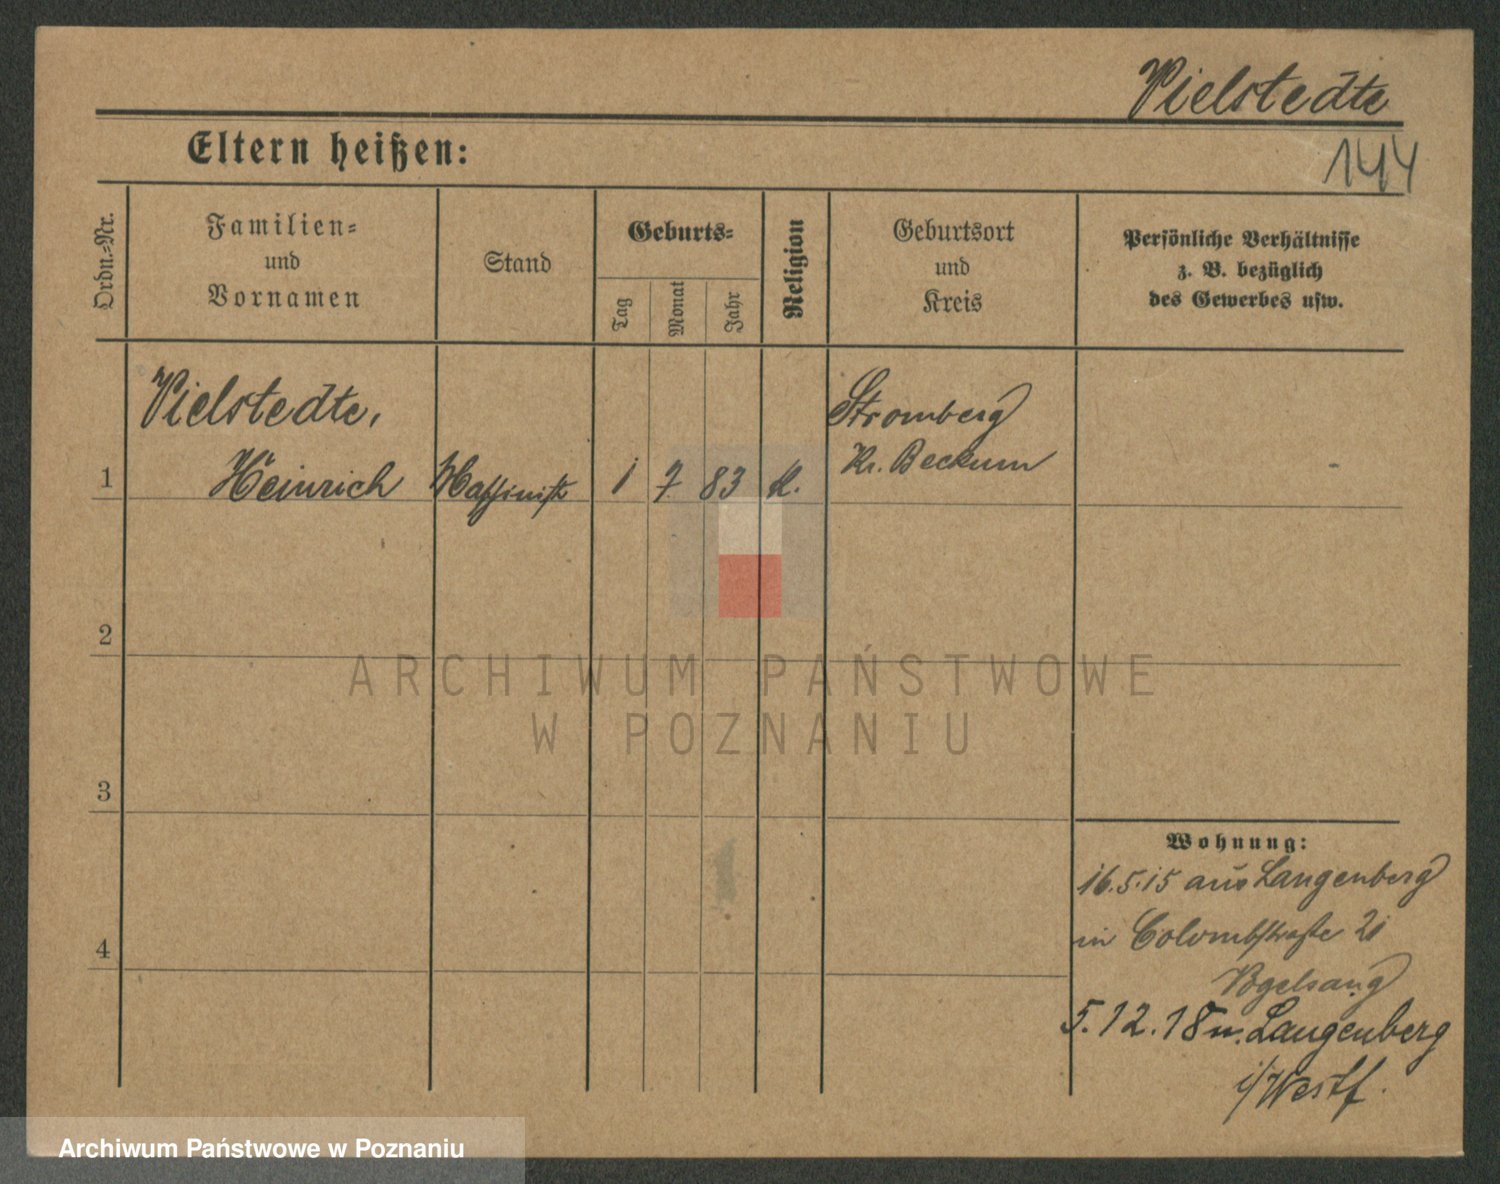 Vielstedte
144
Eltern heißen:
Ordn.-Nr.
Familien-
und
Vornamen
Stand
Geburts-
Tag
Monat
Jahr
Religion
Geburtsort
und
Kreis
Persönliche Verhältnisse
z. B. bezüglich
des Gewerbes usw.
Vielstedte,
Stromberg
1 Heinrich 1 7 83 K. Kr. Beckum
2
3
4
Wohnung:
16.5.15 aus Langenberg
in Colombstraße 21
5.12.18 n. Langenberg
i/Westf.
ARCHIWUM PAŃSTWOWE
W POZNANIU
Archiwum Państwowe w Poznaniu